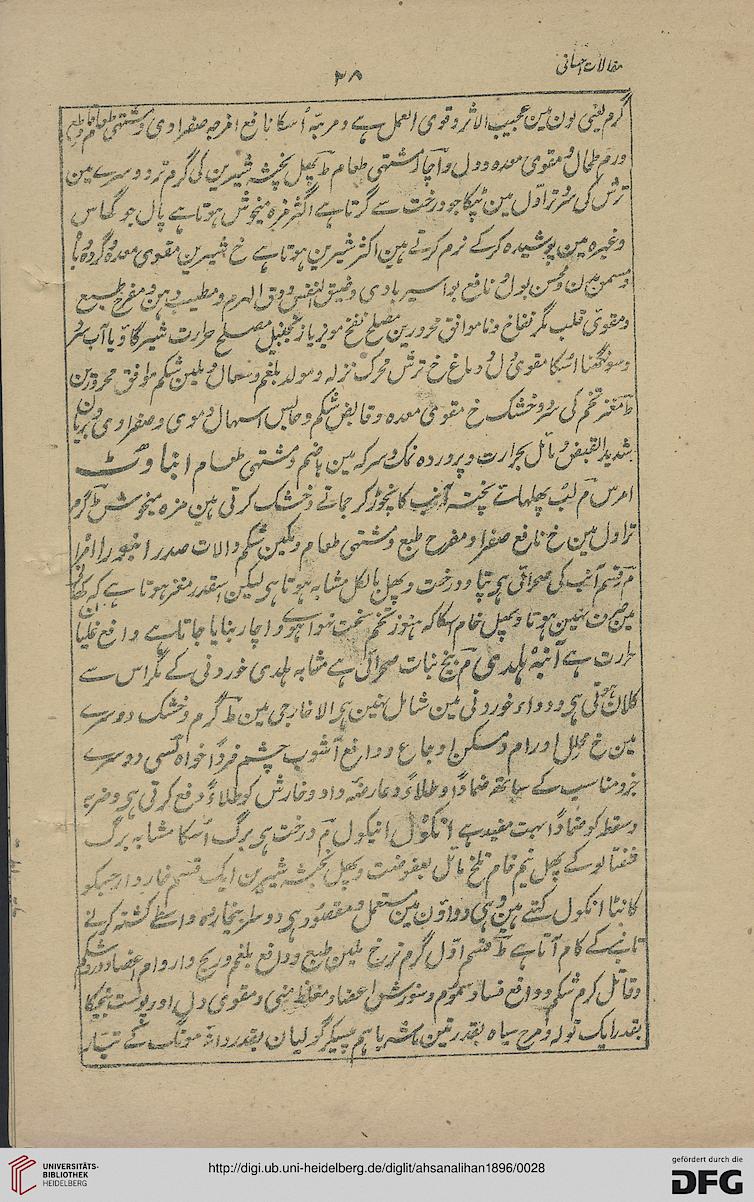 مقالات احسانی
۲۸
گرم یعنی لون مین عجیب الاثر وقوی العمل ہے ومربّہ اُسکا نافع امزجہ صفراوی ومشتہی طعام
ورم طحال ومقوی معدہ ودل وآچار مشتہی طعام ط پھل پختہ شیرین کی گرم تر دوسرے مین
ترش کی سرد تر اوّل مین ٹپکا جو درخت سے گرتا ہے اکثر مزہ میخوش ہوتا ہے پال جو گھاس
وغیرہ مین پوشیدہ کرکے نرم کرتے ہین اکثر شیرین ہوتا ہے خ شیرین مقوی معدہ وگردہ
ومسمن بدن ومحسن لون نافع بواسیر بادی وضیق النفس ومطیب دہن ومفرح طبع
ومقوی قلب مگر نفاخ وناموافق محرورین مصلح نفخ مویز یا زنجبیل مصلح حرارت شیر گاؤ یا آب سرد
وسونگھنا اُسکا مقوی دل ودماغ خ ترش محرک نزلہ ومولد بلغم وسعال وملین شکم موافق محرورین
ط مغز تخم کی سرد وخشک خ مقوی معدہ وقابض شکم وحابس اسہال دموی وصفراوی وبریان
شدید القبض ومائل بحرارت وپروردہ نمک وسرکہ مین ہاضم ومشتہی طعام انباوٹ
امرس م لب پھلہائے پختہ آنب کا نچوڑ کر جماتے وخشک کرتی ہین مزہ میخوش ط گرم
تر اول مین خ نافع صفرا ومفرح طبع ومشتہی طعام وملین شکم والات صدر انبہ
م قسم آنب کی صحرائی ہی پتا ودرخت وپھل بالکل مشابہ ہوتا ہی لیکن اسقدر مغز ہوتا ہے کہ کھانے
مین صرف نہین ہوتا وپھل خام اسکا کہ ہنوز تخم سخت نہوا ہو اچار بنایا جاتا ہے دافع غلیان
حرارت ہے آنبہ ہلدی م بیخ نبات صحرائی ہے مشابہ ہلدی خوردنی کے مگر اس سے
کلان ہوتی ہی ودواء خوردنی مین شامل نہین ہی الا خارجی مین ط گرم وخشک دوسرے
مین خ محلل اورام ومسکن اوجاع ودافع آشوب چشم فرداً خواہ کسی دوسرے
جزو مناسب کے ساتھ ضماداً وطلاءً وعارضہ داد وخارش کو طلاءً دفع کرتی ہی وضربہ
وسقطہ کو ضماداً بہت مفید ہے انکول انیکول م درخت ہی برگ اُسکا مشابہ برگ
شفتالو کے پھل نیم خام تلخ مائل بعفوصت وپھل پختہ شیرین ایک قسم خاردار جسکو
کانٹا انکول کہتے ہین وہی دواؤن مین مستعمل ومقصود ہی دوسرا بیخار واسطے کشتہ کرنے
تانبے کے کام آتا ہے ط قسم اوّل گرم تر خ ملین طبع ودافع بلغم وریح واورام اعضا ودرد شکم
وقاتل کرم شکم ودافع فساد سموم وسوزش اعضا ومغلظ منی ومقوی دل اور پوست بیخکا
بقدر ایک تولہ ومرچ سیاہ بقدر تین ماشہ باہم پیسکر گولیان بقدر دانہ مونگ کے تیار
UNIVERSITÄTS-
BIBLIOTHEK
HEIDELBERG
http://digi.ub.uni-heidelberg.de/diglit/ahsanalihan1896/0028
gefördert durch die
DFG